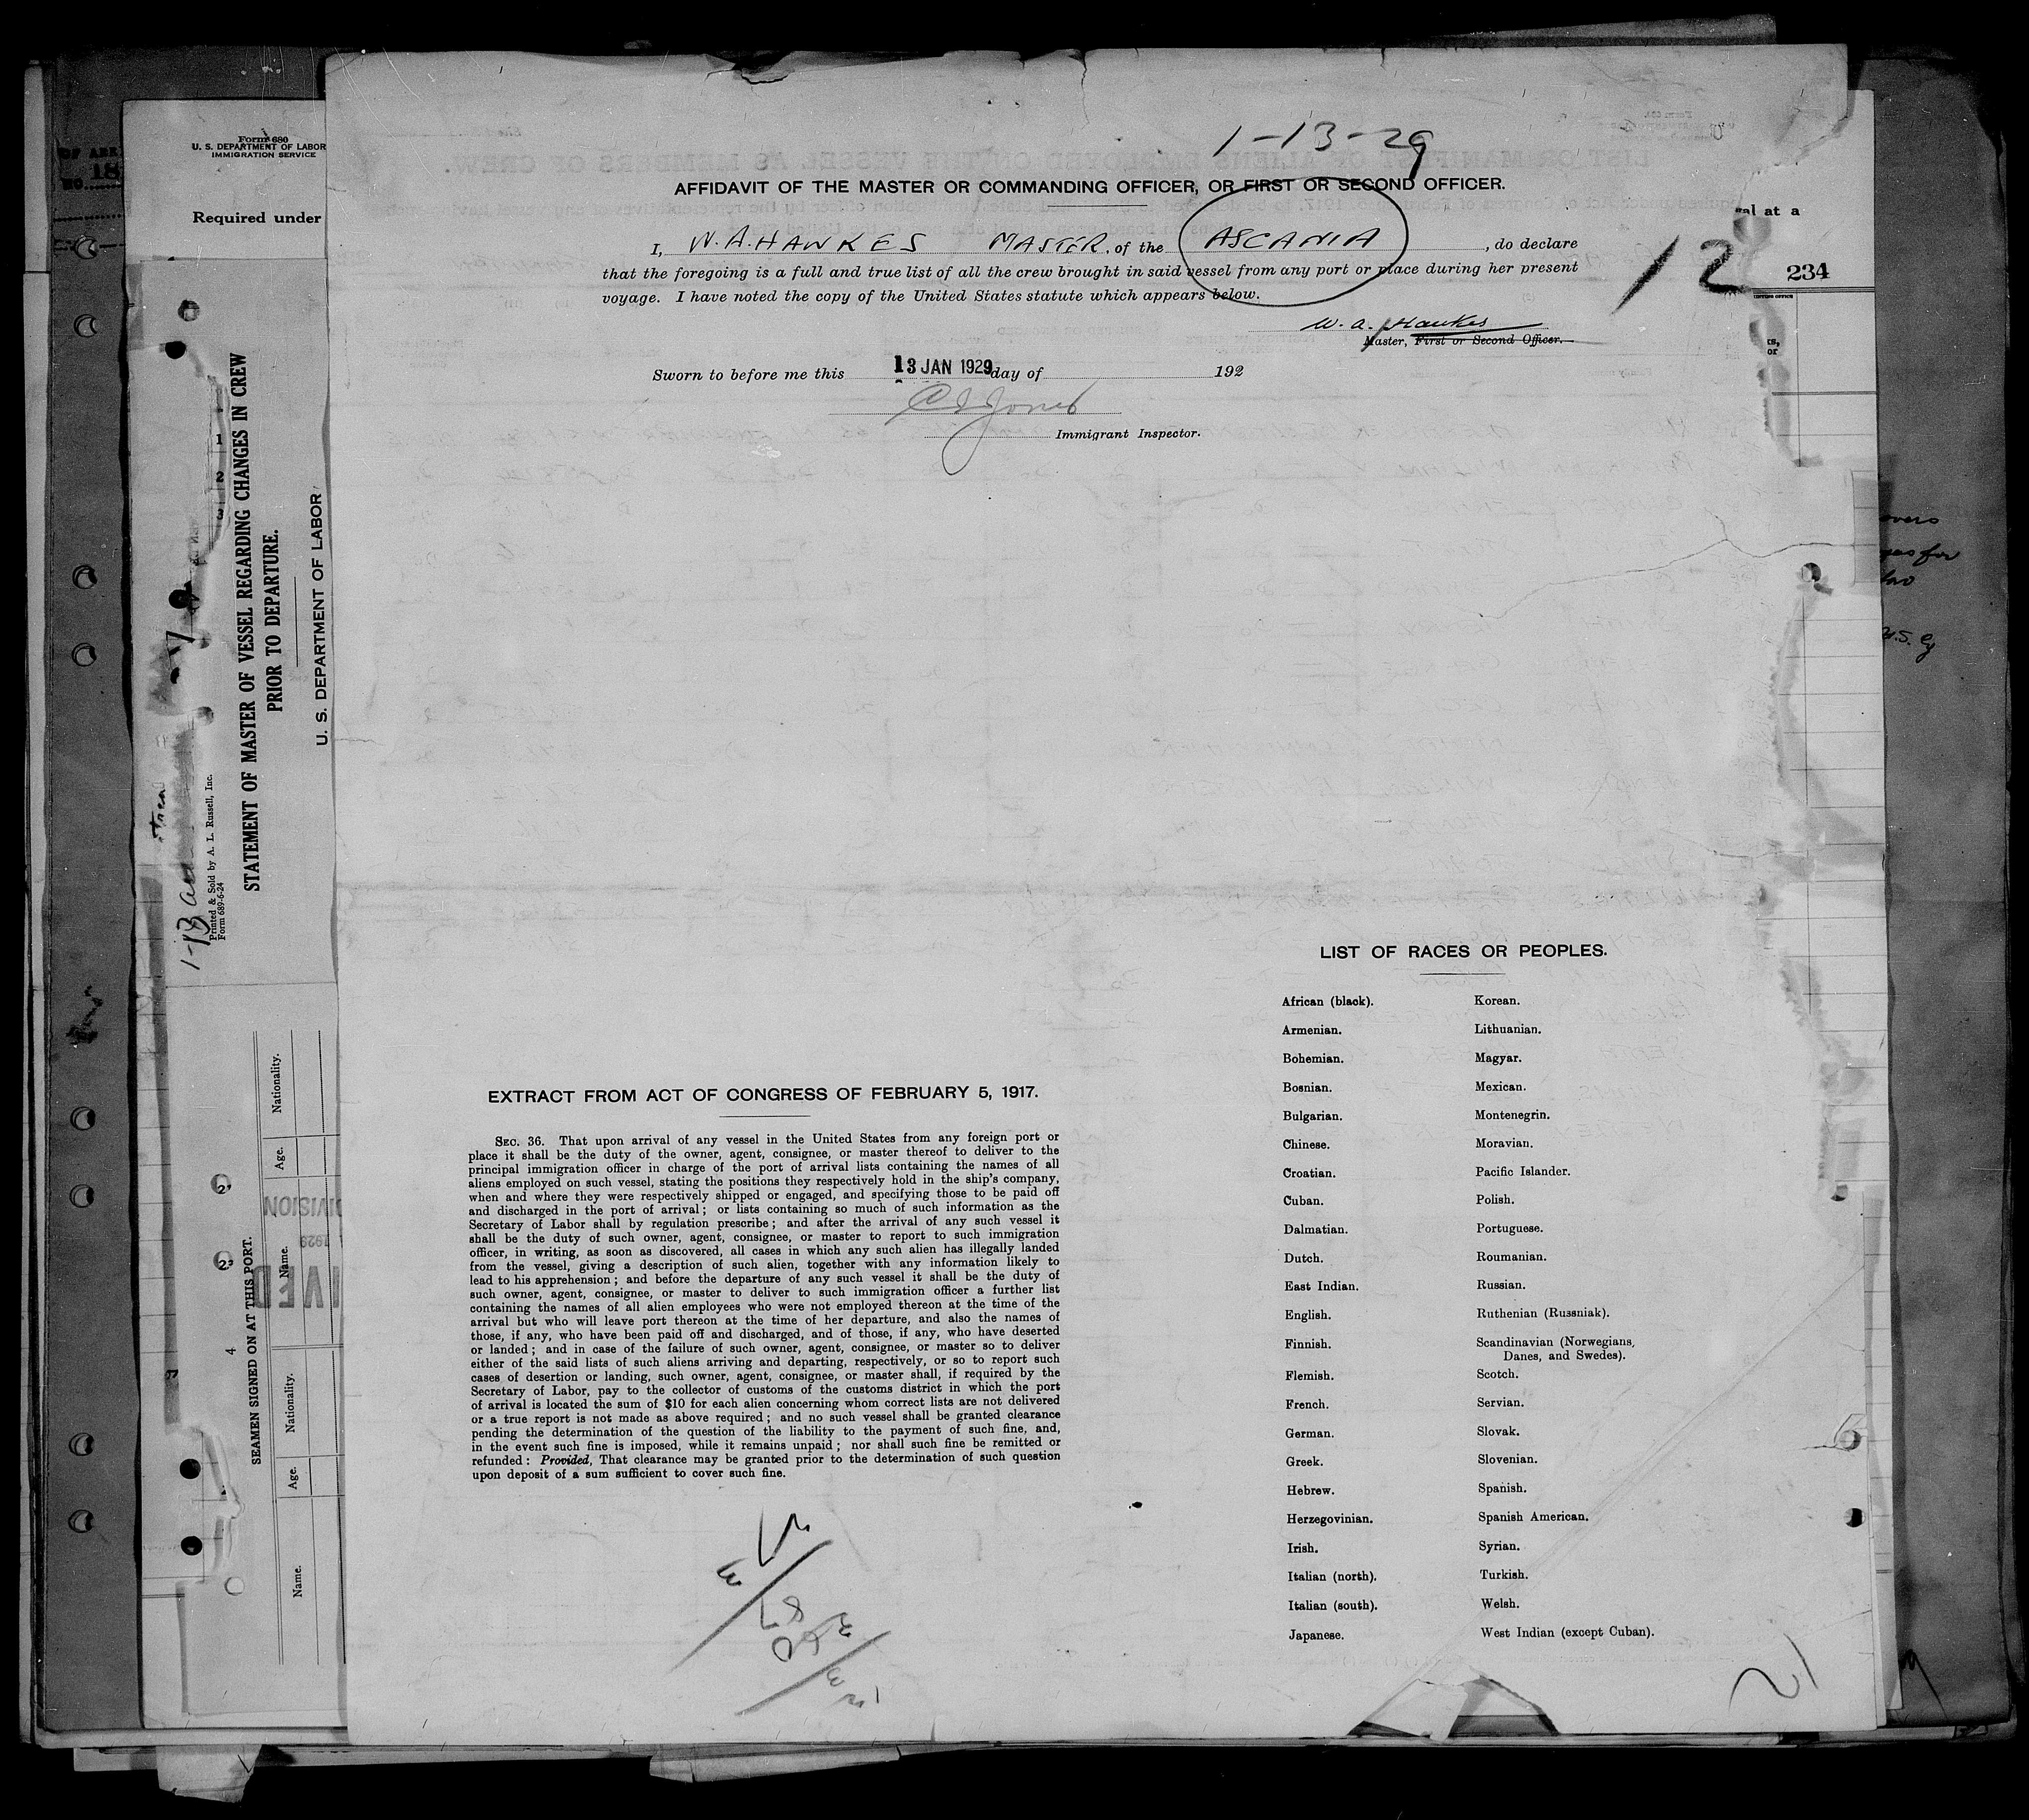 1-13-29
AFFIDAVIT OF THE MASTER OR COMMANDING OFFICER, OR FIRST OR SECOND OFFICER.
I, W. A. HAWKES MASTER, of the ASCANIA, do declare
that the foregoing is a full and true list of all the crew brought in said vessel from any port or place during her present
voyage. I have noted the copy of the United States statute which appears below.
W. A. Hawkes
Master, First or Second Officer.
Sworn to before me this 13 JAN 1929 day of 192
Jones
Immigrant Inspector.
12
EXTRACT FROM ACT OF CONGRESS OF FEBRUARY 5, 1917.
SEC. 36. That upon arrival of any vessel in the United States from any foreign port or
place it shall be the duty of the owner, agent, consignee, or master thereof to deliver to the
principal immigration officer in charge of the port of arrival lists containing the names of all
aliens employed on such vessel, stating the positions they respectively hold in the ship's company,
when and where they were respectively shipped or engaged, and specifying those to be paid off
and discharged in the port of arrival; or lists containing so much of such information as the
Secretary of Labor shall by regulation prescribe; and after the arrival of any such vessel it
shall be the duty of such owner, agent, consignee, or master to report to such immigration
officer, in writing, as soon as discovered, all cases in which any such alien has illegally landed
from the vessel, giving a description of such alien, together with any information likely to
lead to his apprehension; and before the departure of any such vessel it shall be the duty of
such owner, agent, consignee, or master to deliver to such immigration officer a further list
containing the names of all alien employees who were not employed thereon at the time of the
arrival but who will leave port thereon at the time of her departure, and also the names of
those, if any, who have been paid off and discharged, and of those, if any, who have deserted
or landed; and in case of the failure of such owner, agent, consignee, or master so to deliver
either of the said lists of such aliens arriving and departing, respectively, or so to report such
cases of desertion or landing, such owner, agent, consignee, or master shall, if required by the
Secretary of Labor, pay to the collector of customs of the customs district in which the port
of arrival is located the sum of $10 for each alien concerning whom correct lists are not delivered
or a true report is not made as above required; and no such vessel shall be granted clearance
pending the determination of the question of the liability to the payment of such fine, and,
in the event such fine is imposed, while it remains unpaid; nor shall such fine be remitted or
refunded: Provided, That clearance may be granted prior to the determination of such question
upon deposit of a sum sufficient to cover such fine.
LIST OF RACES OR PEOPLES.
African (black).
Armenian.
Bohemian.
Bosnian.
Bulgarian.
Chinese.
Croatian.
Cuban.
Dalmatian.
Dutch.
East Indian.
English.
Finnish.
Flemish.
French.
German.
Greek.
Hebrew.
Herzegovinian.
Irish.
Italian (north).
Italian (south).
Japanese.
Korean.
Lithuanian.
Magyar.
Mexican.
Montenegrin.
Moravian.
Pacific Islander.
Polish.
Portuguese.
Roumanian.
Russian.
Ruthenian (Russniak).
Scandinavian (Norwegians,
Danes, and Swedes).
Scotch.
Servian.
Slovak.
Slovenian.
Spanish.
Spanish American.
Syrian.
Turkish.
Welsh.
West Indian (except Cuban).
Form 680
U. S. DEPARTMENT OF LABOR
IMMIGRATION SERVICE
Required under
STATEMENT OF MASTER OF VESSEL REGARDING CHANGES IN CREW
PRIOR TO DEPARTURE.
U. S. DEPARTMENT OF LABOR
1
2
3
Printed & Sold by A. L. Russell, Inc.
Form 689-6-24
4
SEAMEN SIGNED ON AT THIS PORT.
Name.
Age.
Nationality.
Name.
Age.
Nationality.
al at a
234